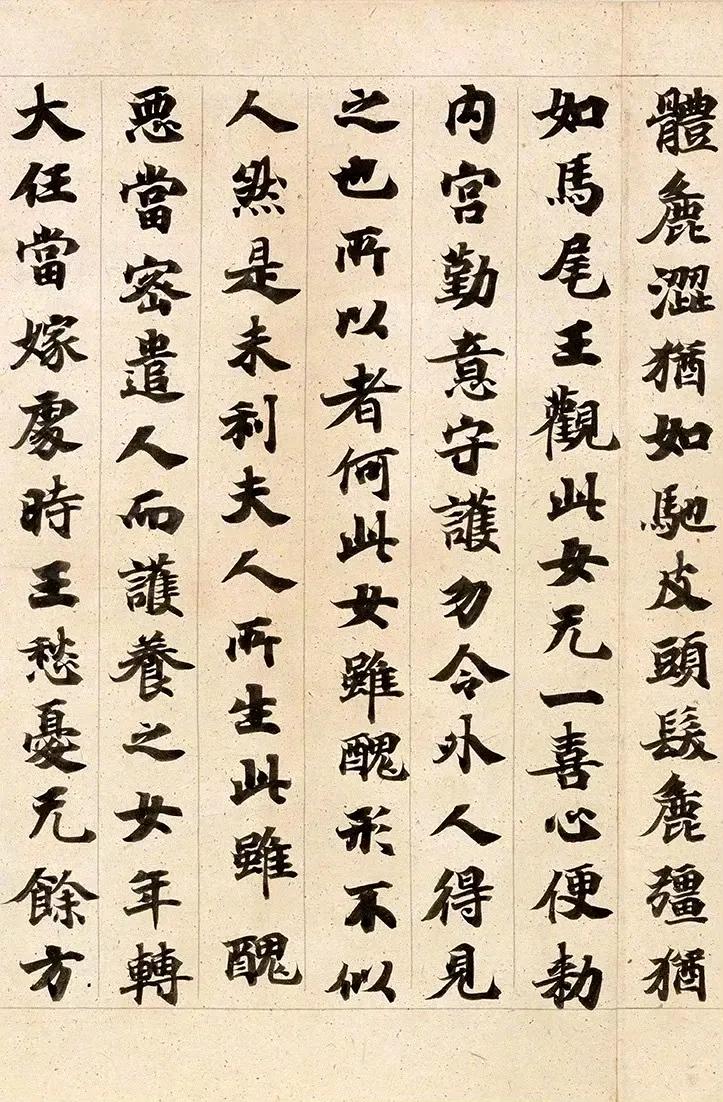 體麁澀猶如馳皮頭髮麁彊猶
如馬尾王觀此女无一喜心便勑
内宮勤意守護勿令外人得見
之也所以者何此女雖醜形不似
人然是末利夫人所生此雖醜
惡當密遣人而護養之女年轉
大任當嫁處時王愁憂无餘方